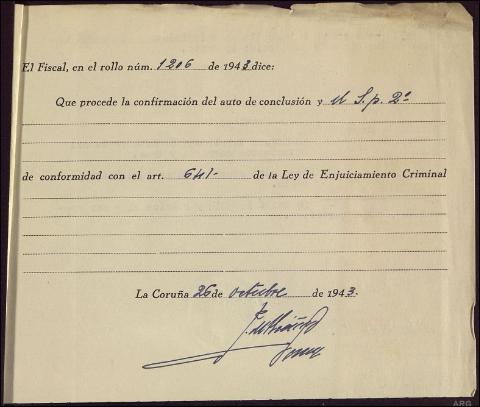 El Fiscal, en el rollo núm. 1206 de 1943 dice:
Que procede la confirmación del auto de conclusión y el S. p. 2º
de conformidad con el art. 641- de la Ley de Enjuiciamiento Criminal
La Coruña 26 de octubre de 1943.
ARG